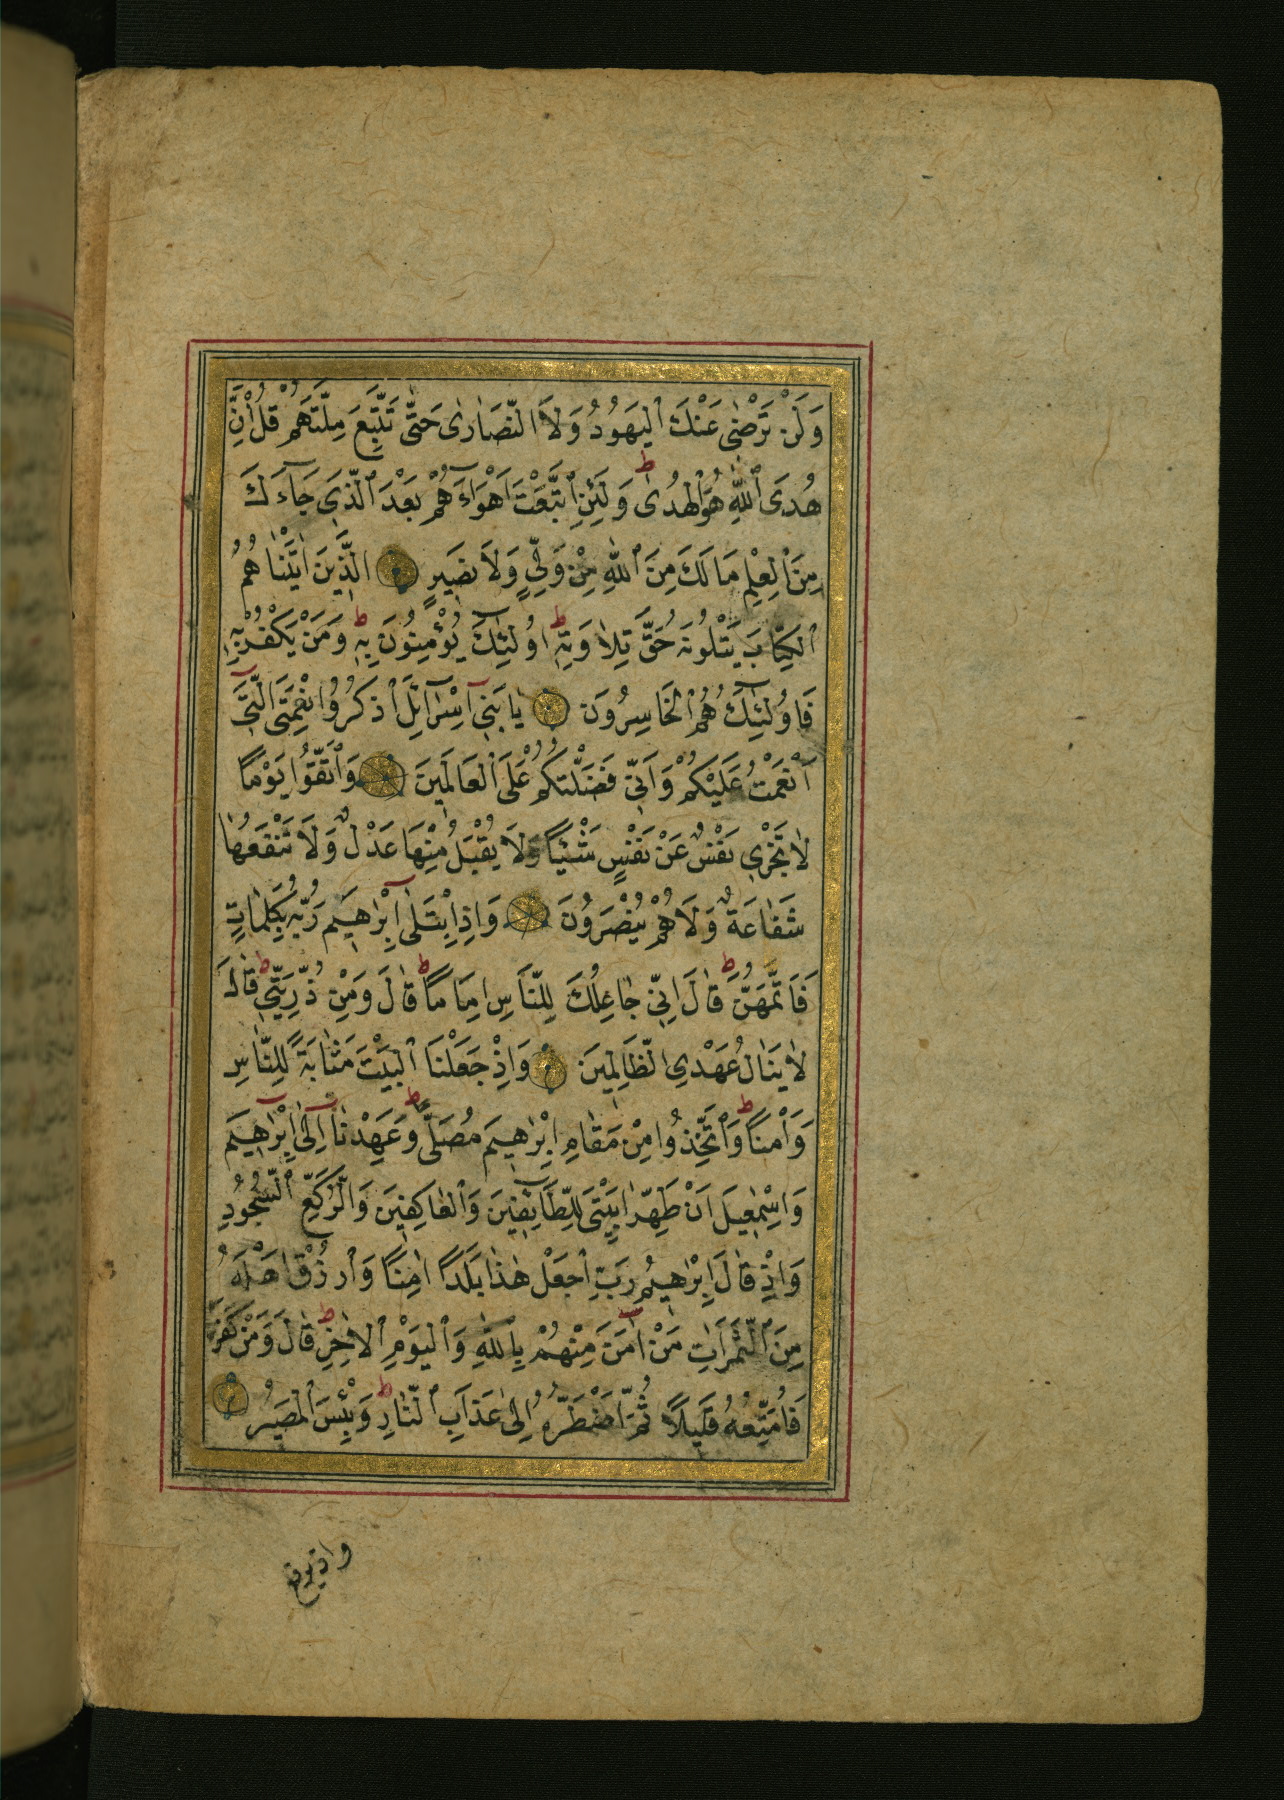 وَلَنْ تَرْضٰى عَنْكَ ٱلْيَهُودُ وَلَا ٱلنَّصَارٰى حَتّٰى تَتَّبِعَ مِلَّتَهُمْ قُلْ اِنَّ
هُدَى ٱللّٰهِ هُوَ ٱلْهُدٰى ط وَلَئِنِ ٱتَّبَعْتَ اَهْوَآءَهُمْ بَعْدَ ٱلَّذِى جَآءَكَ
مِنَ ٱلْعِلْمِ مَا لَكَ مِنَ ٱللّٰهِ مِنْ وَلِىٍّ وَلَا نَصِيرٍ الَّذِينَ اٰتَيْنَاهُمُ
ٱلْكِتَابَ يَتْلُونَهُ حَقَّ تِلَاوَتِهِ ط اُولٰئِكَ يُؤْمِنُونَ بِهِ ط وَمَنْ يَكْفُرْ بِهِ
فَاُولٰئِكَ هُمُ ٱلْخَاسِرُونَ يَا بَنِى اِسْرَآئِلَ ٱذْكُرُوا نِعْمَتِىَ ٱلَّتِى
اَنْعَمْتُ عَلَيْكُمْ وَاَنِّى فَضَّلْتُكُمْ عَلَى ٱلْعَالَمِينَ وَٱتَّقُوا يَوْمًا
لَا تَجْزِى نَفْسٌ عَنْ نَفْسٍ شَيْئًا وَلَا يُقْبَلُ مِنْهَا عَدْلٌ وَلَا تَنْفَعُهَا
شَفَاعَةٌ وَلَا هُمْ يُنْصَرُونَ وَاِذِ ٱبْتَلٰى اِبْرٰهِيمَ رَبُّهُ بِكَلِمَاتٍ
فَاَتَمَّهُنَّ ط قَالَ اِنِّى جَاعِلُكَ لِلنَّاسِ اِمَامًا ط قَالَ وَمِنْ ذُرِّيَّتِى ط قَالَ
لَا يَنَالُ عَهْدِى ٱلظَّالِمِينَ وَاِذْ جَعَلْنَا ٱلْبَيْتَ مَثَابَةً لِلنَّاسِ
وَاَمْنًا ط وَٱتَّخِذُوا مِنْ مَقَامِ اِبْرٰهِيمَ مُصَلًّى ط وَعَهِدْنَا اِلٰى اِبْرٰهِيمَ
وَاِسْمٰعِيلَ اَنْ طَهِّرَا بَيْتِىَ لِلطَّآئِفِينَ وَٱلْعَاكِفِينَ وَٱلرُّكَّعِ ٱلسُّجُودِ
وَاِذْ قَالَ اِبْرٰهِيمُ رَبِّ ٱجْعَلْ هٰذَا بَلَدًا اٰمِنًا وَٱرْزُقْ اَهْلَهُ
مِنَ ٱلثَّمَرَاتِ مَنْ اٰمَنَ مِنْهُمْ بِٱللّٰهِ وَٱلْيَوْمِ ٱلْاٰخِرِ ط قَالَ وَمَنْ كَفَرَ
فَاُمَتِّعُهُ قَلِيلًا ثُمَّ اَضْطَرُّهُ اِلٰى عَذَابِ ٱلنَّارِ ط وَبِئْسَ ٱلْمَصِيرُ
واذ يرفع